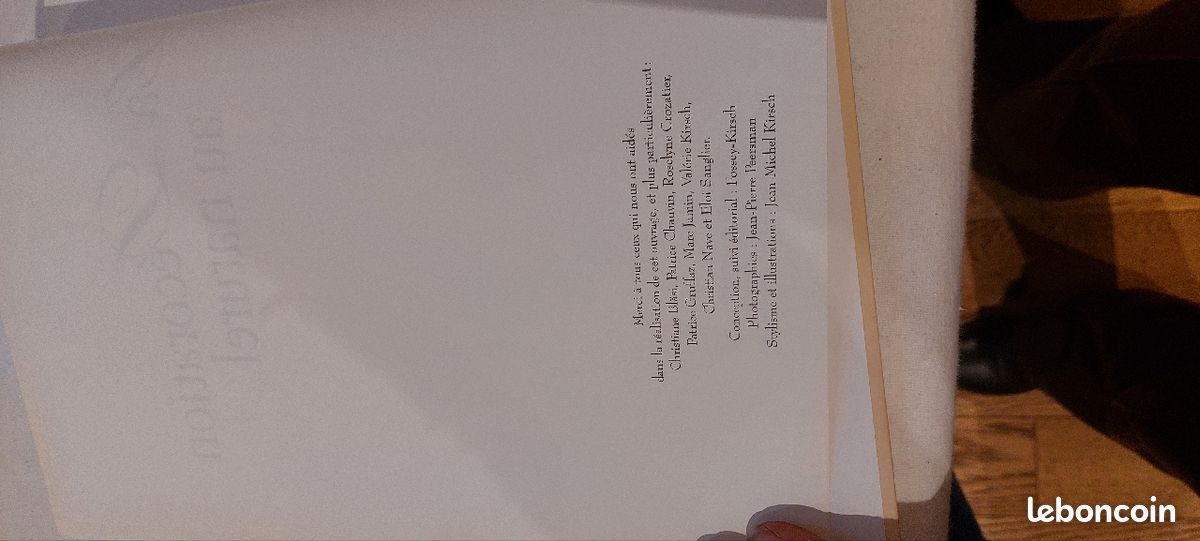 Merci à tous ceux qui nous ont aidés
dans la réalisation de cet ouvrage, et plus particulièrement :
Christiane Blasi, Patrice Chauvin, Roselyne Crozatier,
Patrice Cruffaz, Marc Janin, Valérie Kirsch,
Christian Nave et Eloi Sanglier.
Conception, suivi éditorial : Fossey-Kirsch
Photographies : Jean-Pierre Peersman
Stylisme et illustrations : Jean Michel Kirsch
leboncoin